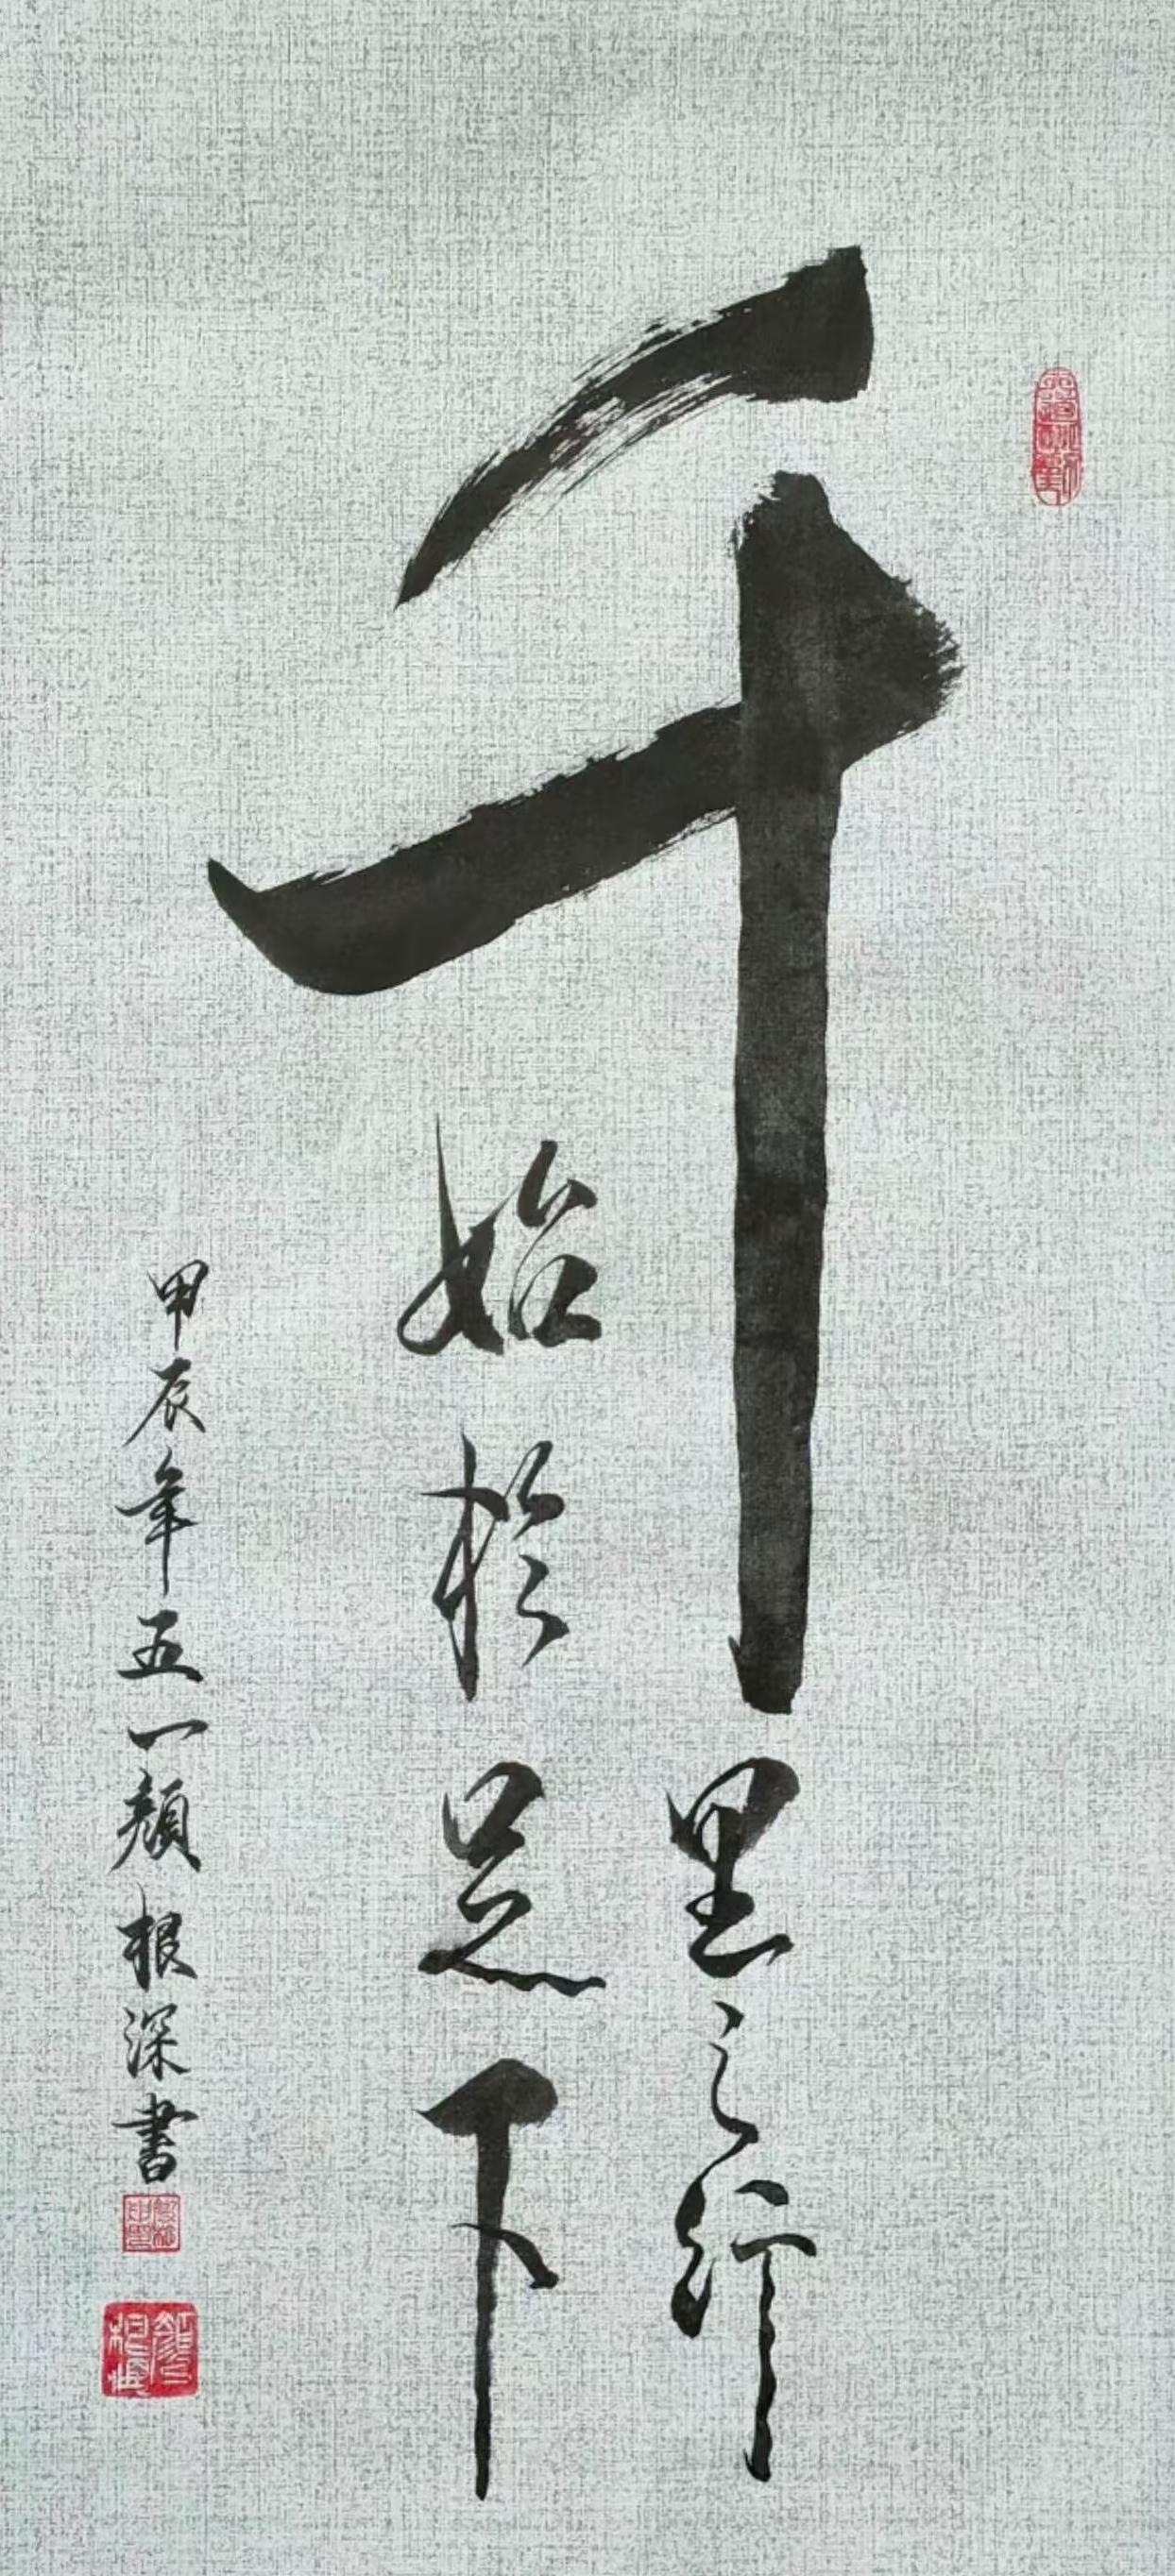 千里之行
始於足下
甲辰年五一顏根深書